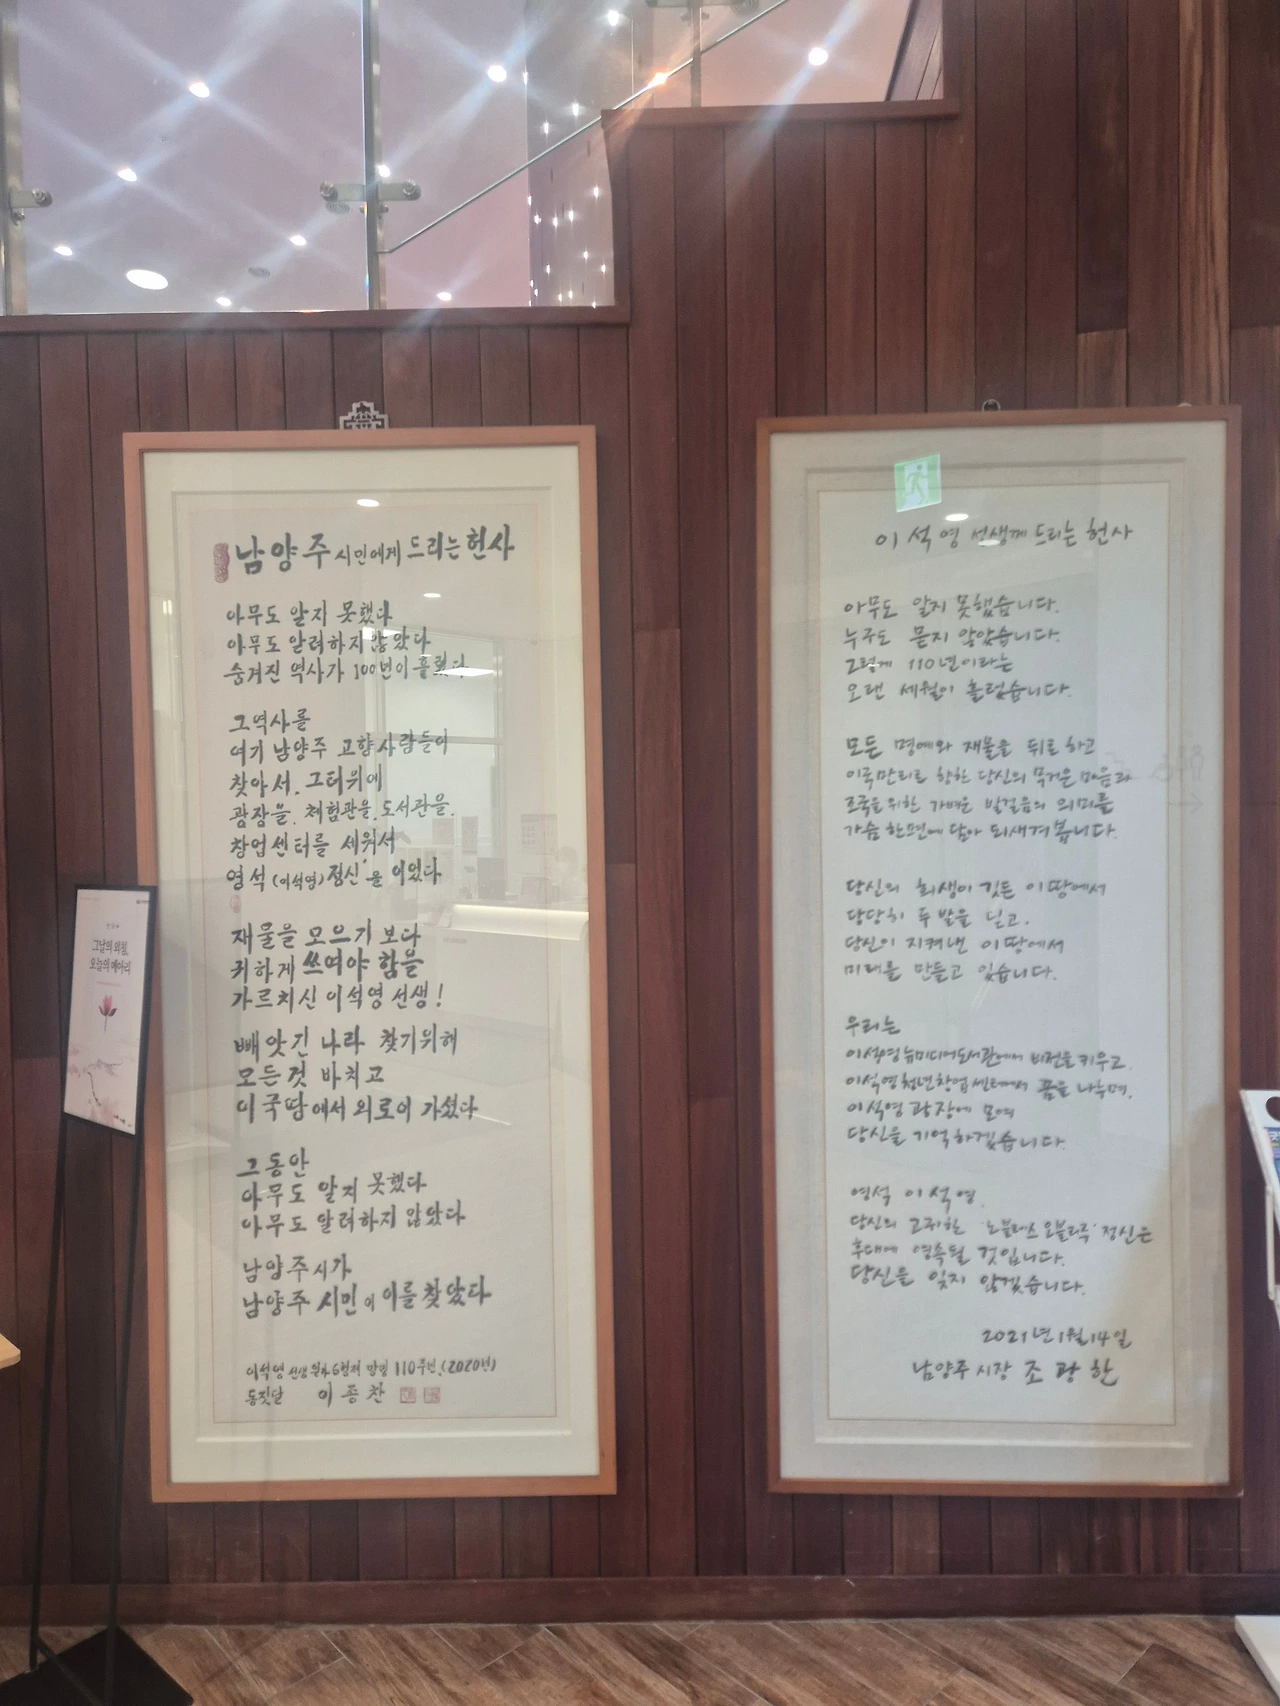 남양주 시민에게 드리는 헌사
아무도 알지 못했다
아무도 알려하지 않았다
숨겨진 역사가 100년이 흘렀다
그 역사를
여기 남양주 고향사람들이
찾아서, 그 터위에
광장을, 체험관을, 도서관을,
창업센터를 세워서
영석(이석영)정신'을 이었다
재물을 모으기 보다
귀하게 쓰여야 함을
가르치신 이석영 선생!
빼앗긴 나라 찾기위해
모든것 바치고
이국땅에서 외로이 가셨다
그동안
아무도 알지 못했다
아무도 알려하지 않았다
남양주시가
남양주 시민이 이를 찾았다
이석영 선생 망명 110주년, (2020년)
동짓달 이종찬
이석영 선생께 드리는 헌사
아무도 알지 못했습니다.
누구도 묻지 않았습니다.
그렇게 110년이라는
오랜 세월이 흘렀습니다.
모든 명예와 재물을 뒤로 하고
이국만리로 향한 당신의 무거운 마음과
조국을 위한 가벼운 발걸음의 의미를
가슴 한편에 담아 되새겨 봅니다.
당신의 희생이 깃든 이 땅에서
당당히 두 발을 딛고,
당신이 지켜낸 이 땅에서
미래를 만들고 있습니다.
우리는
이석영뉴미디어도서관에서 비전을 키우고,
이석영청년창업센터에서 꿈을 나누며,
이석영광장에 모여
당신을 기억하겠습니다.
영석 이석영,
당신의 고귀한 '노블레스 오블리주' 정신은
후대에 영속될 것입니다.
당신을 잊지 않겠습니다.
2021년 1월 14일
남양주 시장 조광한
그날의 외침,
오늘의 메아리